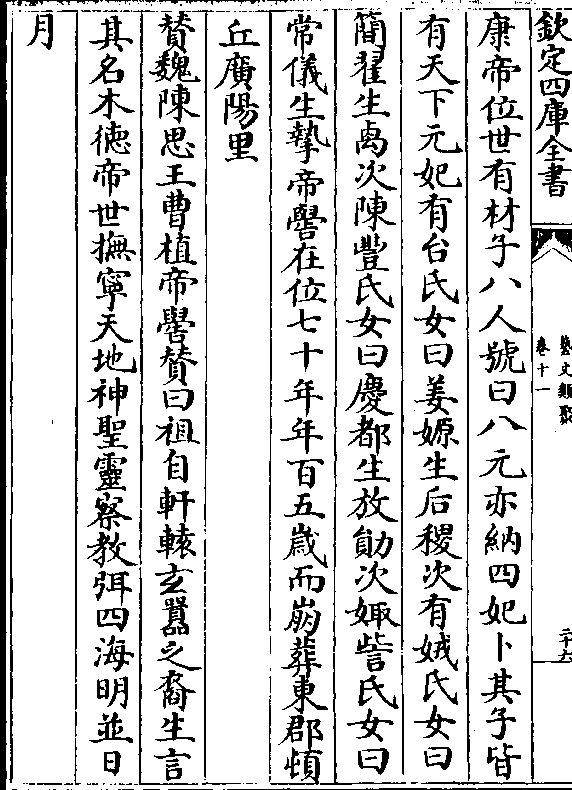 欽定四庫全書
藝文類聚
卷十一
二十六
康帝位世有材子八人號曰八元亦納四妃卜其子皆
有天下元妃有台氏女曰姜嫄生后稷次有娀氏女曰
簡翟生卨次陳豐氏女曰慶都生放勛次娵訾氏女曰
常儀生摯帝嚳在位七十年年百五歲而崩葬東郡頓
丘廣陽里
賛魏陳思王曹植帝嚳賛曰祖自軒轅玄囂之裔生言
其名木徳帝世撫寧天地神聖靈察教弭四海明並日
月